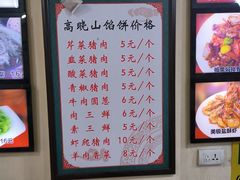 高晓山馅饼价格
芹菜猪肉 5元/个
韭菜猪肉 5元/个
酸菜猪肉 5元/个
青椒猪肉 5元/个
牛肉圆葱 6元/个
肉三鲜 5元/个
素三鲜 5元/个
虾爬猪肉 10元/个
羊肉香菜 8元/个
美极盐酥虾